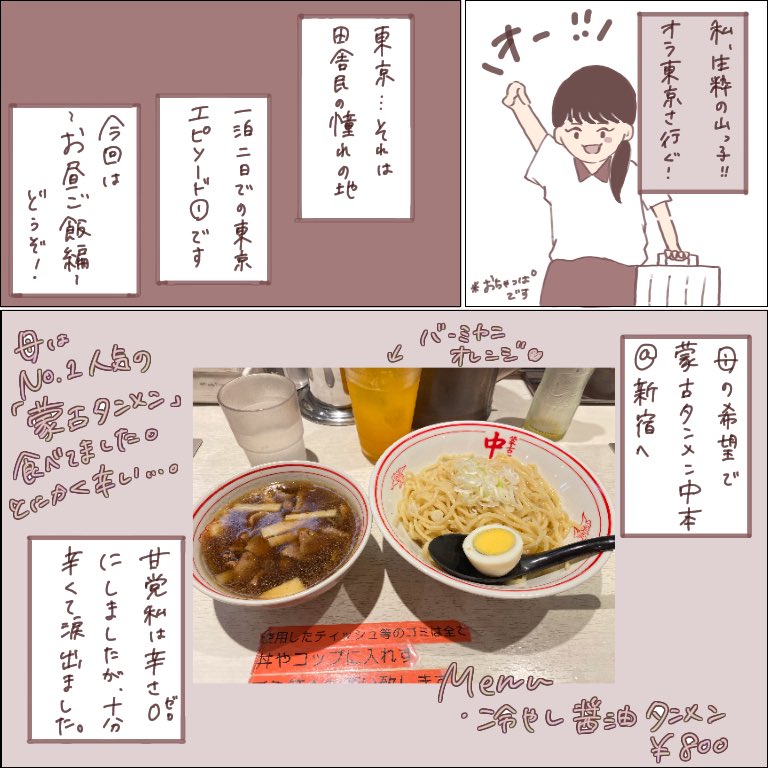 私、生粋の山っ子!!
オラ東京さ行ぐ!
オー!!
*おちゃっぱ°
です
東京…それは
田舎民の憧れの地
一泊二日での東京
エピソード①です
今回は
~お昼ご飯編~
どうぞ!
母の希望で
蒙古タンメン中本
@新宿へ
バーミヤン
オレンジ
母は
No.1人気の
「蒙古タンメン」
食べてました。
とにかく辛い…。
蒙古
中
使用したティッシュ等のゴミは全て
丼やコップに入れず
甘党私は辛さ0
ゼロ
にしましたが、十分
辛くて涙出ました。
Menu
・冷やし醤油タンメン
¥800